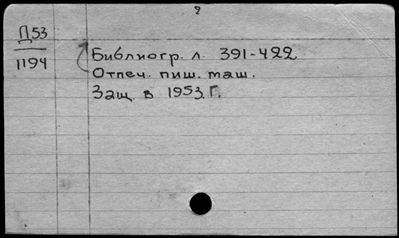 ?
Д53
1194
Библиогр. л. 391-422
Отпеч. пиш. маш.
Защ. в 1953.Г.